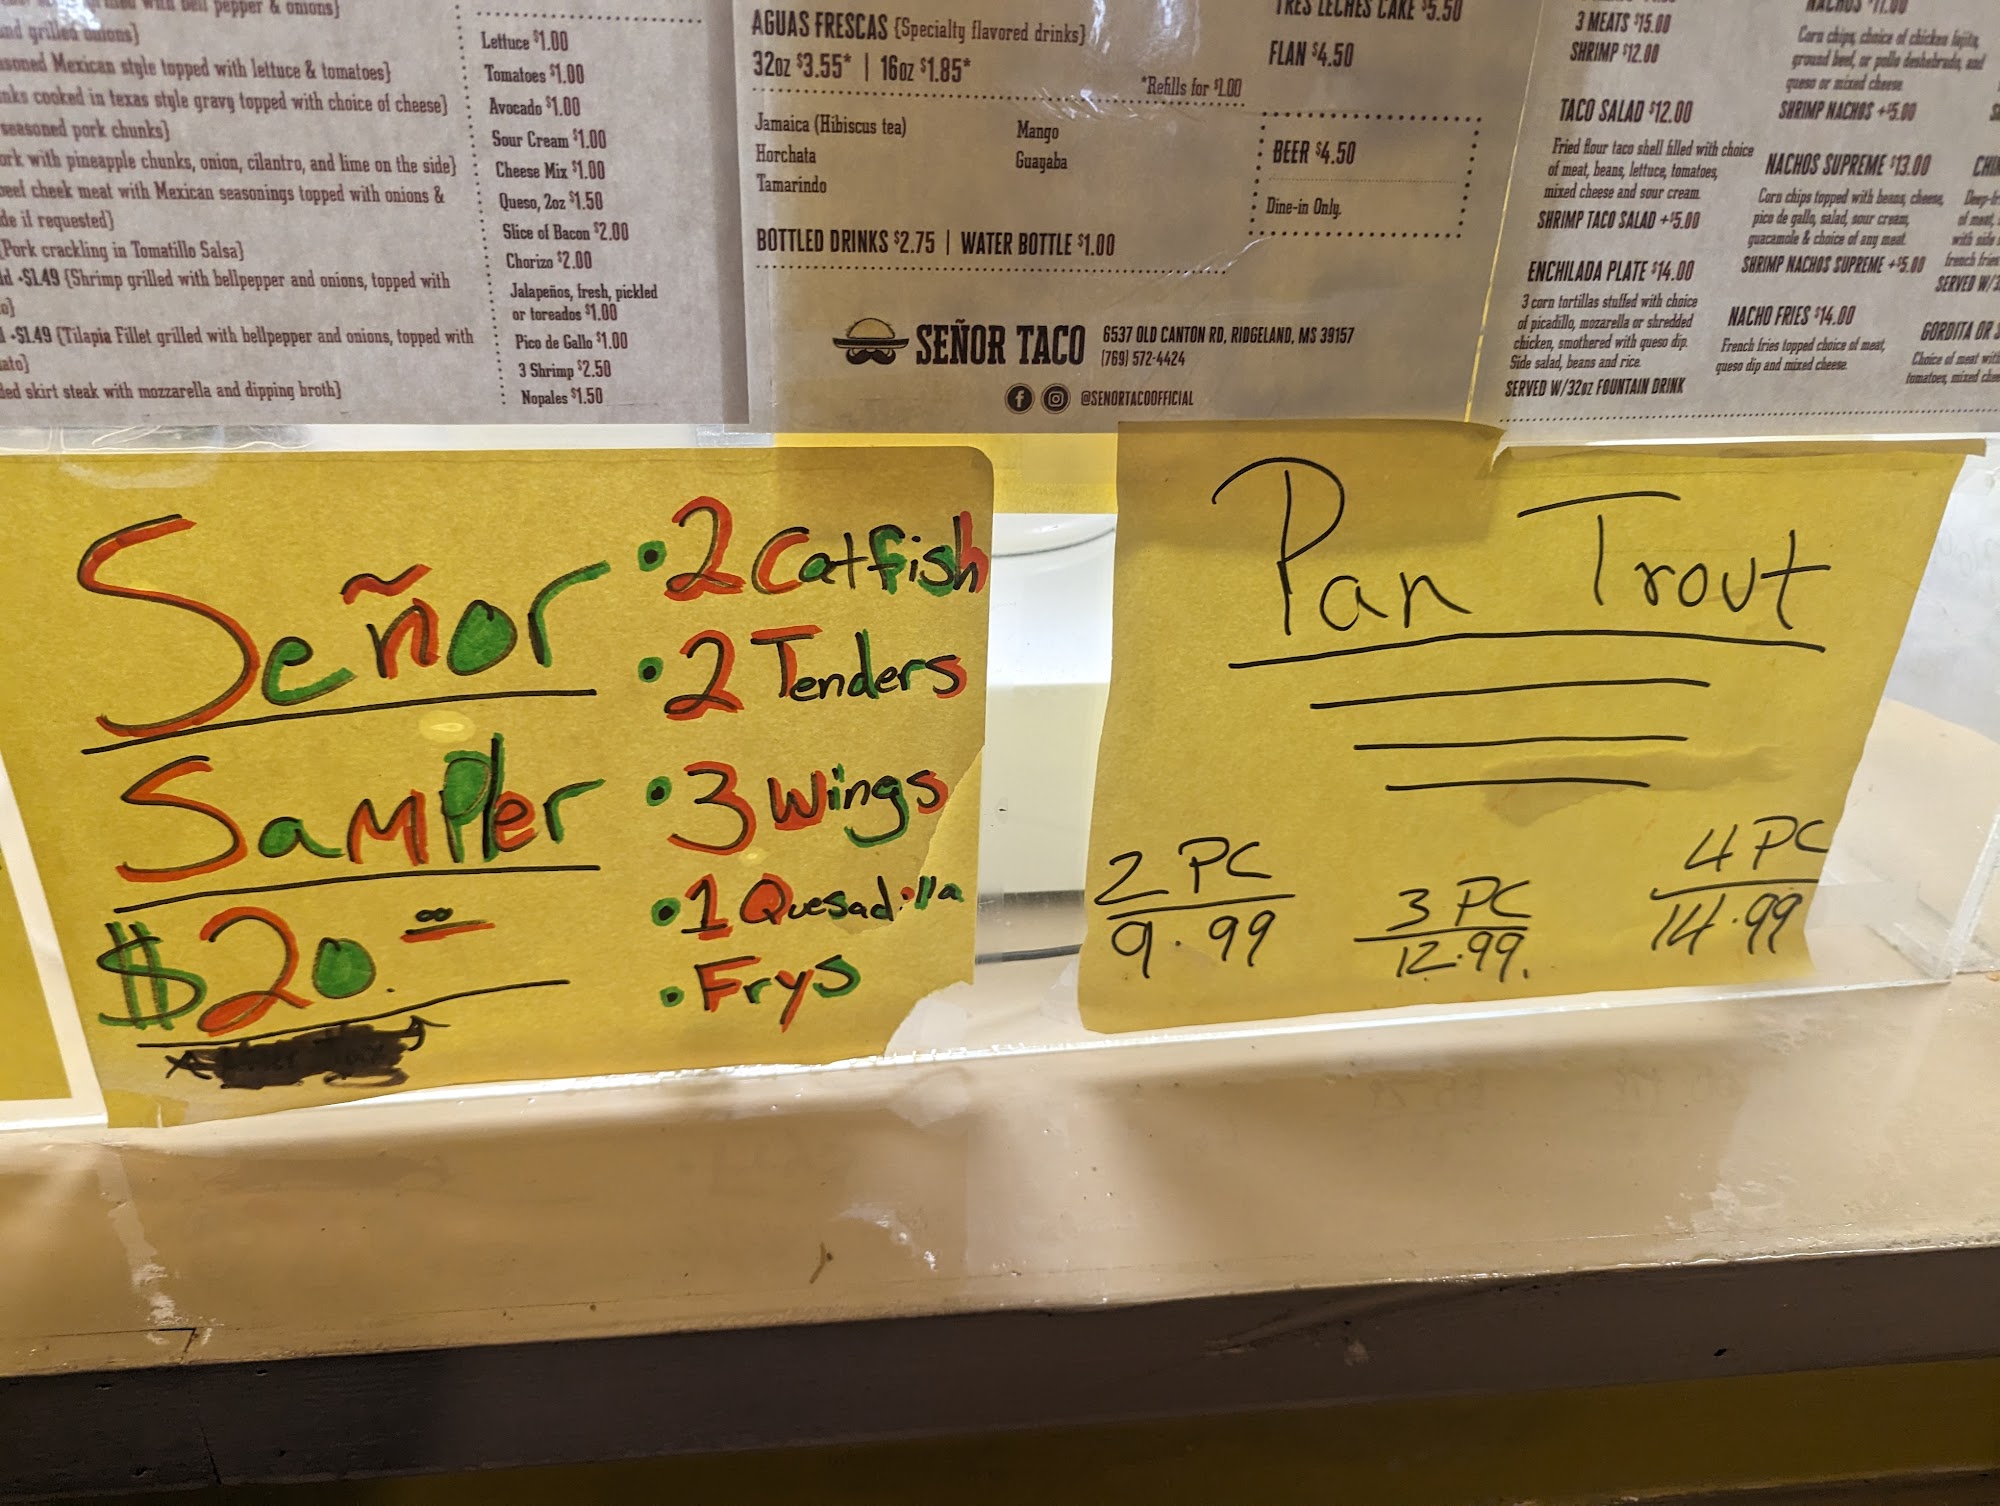 with bell pepper & onions}
and grilled onions}
Mexican style topped with lettuce & tomatoes}
cooked in texas style gravy topped with choice of cheese}
seasoned pork chunks}
with pineapple chunks, onion, cilantro, and lime on the side}
beef cheek meat with Mexican seasonings topped with onions &
if requested}
{Pork crackling in Tomatillo Salsa}
+$1.49 {Shrimp grilled with bellpepper and onions, topped with
+$1.49 {Tilapia Fillet grilled with bellpepper and onions, topped with
skirt steak with mozzarella and dipping broth}
Lettuce $1.00
Tomatoes $1.00
Avocado $1.00
Sour Cream $1.00
Cheese Mix $1.00
Queso, 2oz $1.50
Slice of Bacon $2.00
Chorizo $2.00
Jalapeños, fresh, pickled
or toreados $1.00
Pico de Gallo $1.00
3 Shrimp $2.50
Nopales $1.50
AGUAS FRESCAS {Specialty flavored drinks}
32oz $3.55* | 16oz $1.85*
*Refills for $1.00
Jamaica (Hibiscus tea)
Horchata
Tamarindo
Mango
Guayaba
BOTTLED DRINKS $2.75 | WATER BOTTLE $1.00
TRES LECHES CAKE $5.50
FLAN $4.50
BEER $4.50
Dine-in Only.
SEÑOR TACO
6537 OLD CANTON RD, RIDGELAND, MS 39157
(769) 572-4424
@SENORTACOOFFICIAL
3 MEATS $15.00
SHRIMP $12.00
TACO SALAD $12.00
Fried flour taco shell filled with choice
of meat, beans, lettuce, tomatoes,
mixed cheese and sour cream.
SHRIMP TACO SALAD +$5.00
ENCHILADA PLATE $14.00
3 corn tortillas stuffed with choice
of picadillo, mozarella or shredded
chicken, smothered with queso dip.
Side salad, beans and rice.
SERVED W/32oz FOUNTAIN DRINK
NACHOS $11.00
Corn chips, choice of chicken fajita,
ground beef, or pollo deshebrado, and
queso or mixed cheese
SHRIMP NACHOS +$5.00
NACHOS SUPREME $13.00
Corn chips topped with beans, cheese,
pico de gallo, salad, sour cream,
guacamole & choice of any meat.
SHRIMP NACHOS SUPREME +$5.00
NACHO FRIES $14.00
French fries topped choice of meat,
queso dip and mixed cheese.
of meat,
with side
french fries
SERVED W/
GORDITA OR
Choice of meat with
tomatoes, mixed
Señor
Sampler
$20.00
• 2 Catfish
• 2 Tenders
• 3 Wings
• 1 Quesadilla
• Frys
Pan Trout
2 PC
9.99
3 PC
12.99.
4 PC
14.99